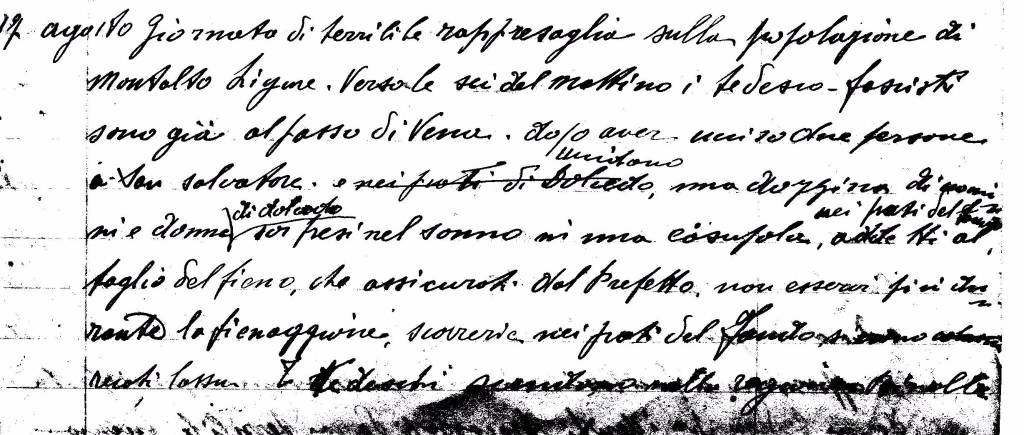 agosto Giornata di terribile rappresaglia sulla popolazione di
Montalto Ligure. Verso le sei del mattino i tedesco-fascisti
sono già al passo di Vena. dopo aver ucciso due persone
uccidono
a San Salvatore. e nei prati di Dolcedo, una dozzina di uomi
nei prati del
ni e donne di dolcedo sorpresi nel sonno in una casupola, addetti al
taglio del fieno, che assicurati dal Prefetto, non esserci più du
rante la fienaggione, scorrerie nei prati del
recati lassu. I Tedeschi